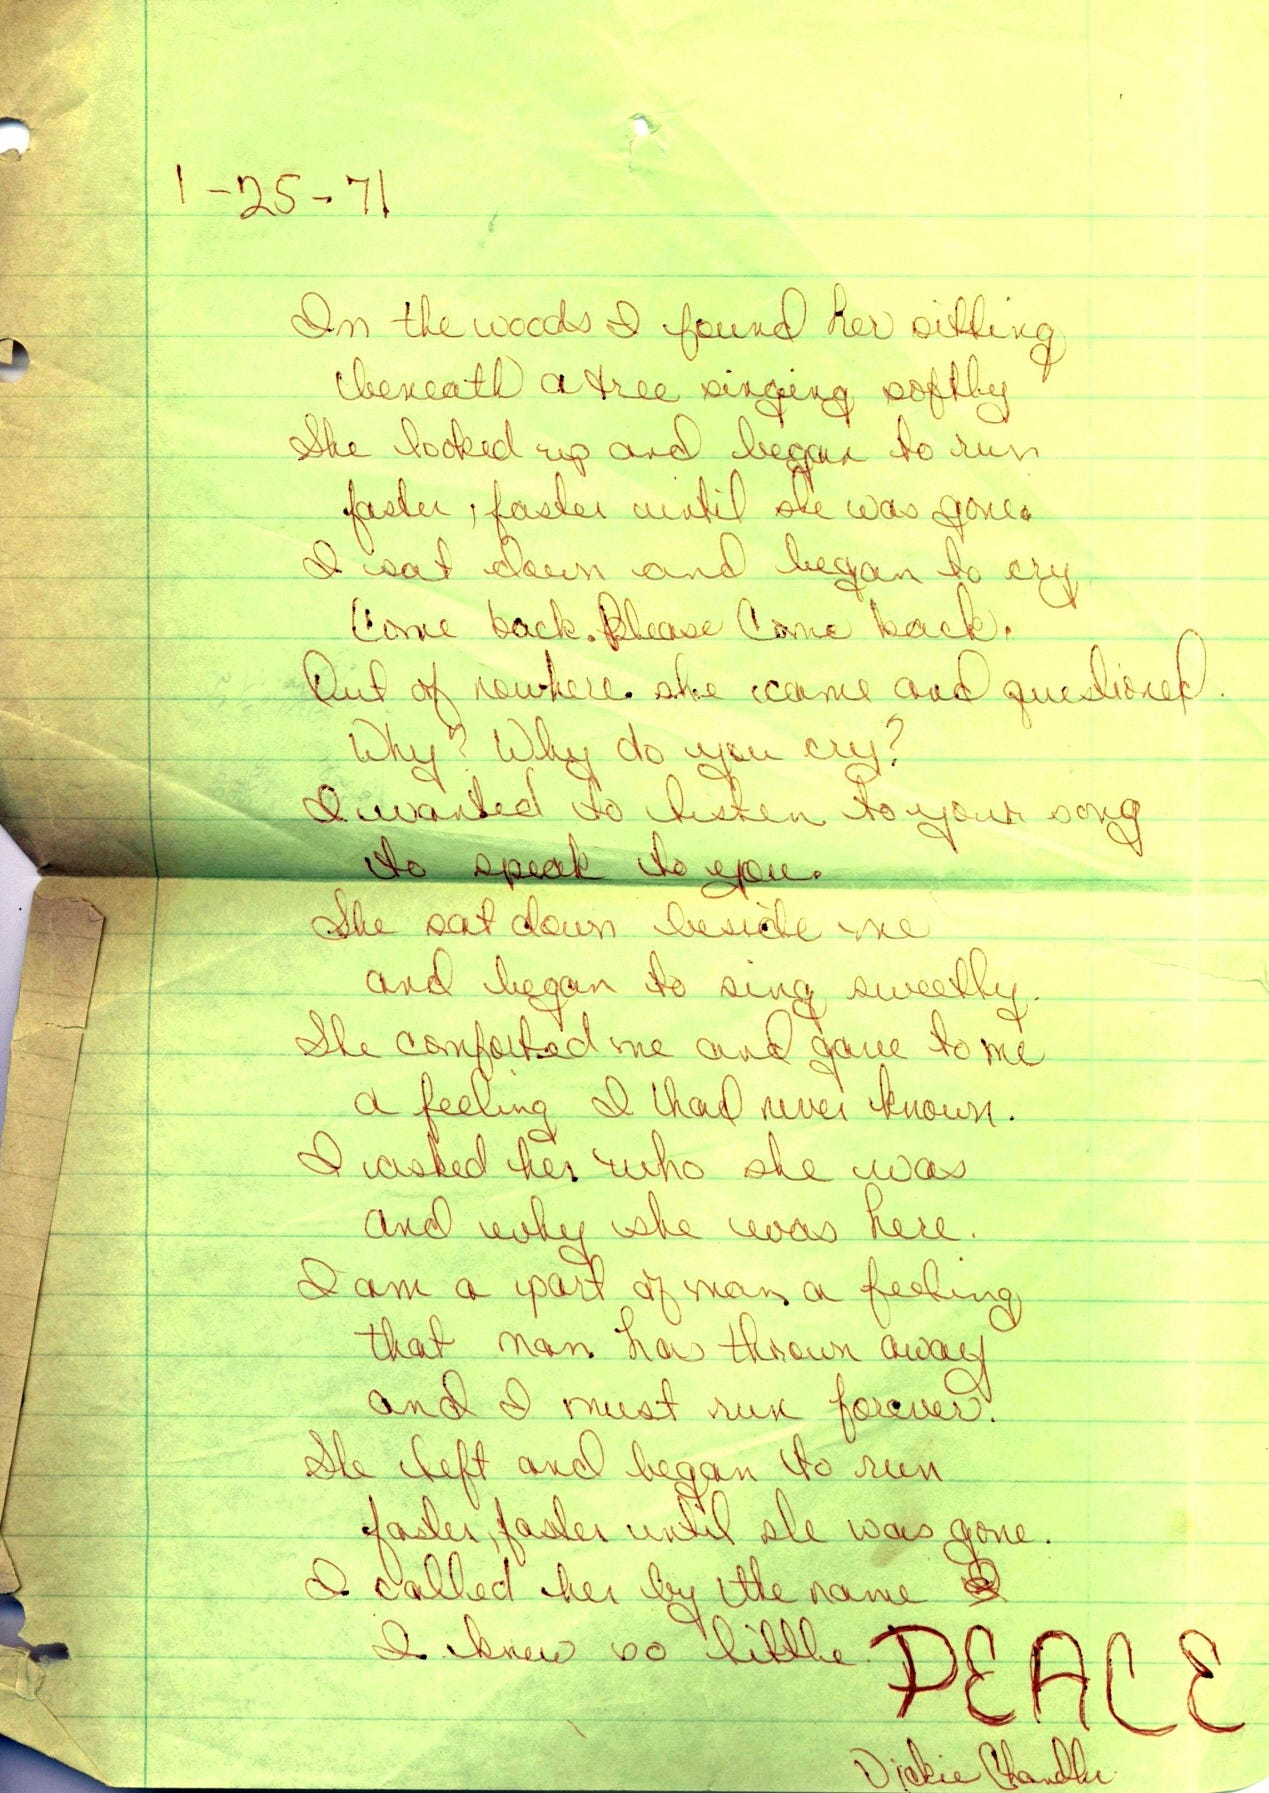 1-25-71
In the woods I found her sitting
beneath a tree singing softly
She looked up and began to run
faster, faster until she was gone.
I sat down and began to cry
Come back. Please Come back.
Out of nowhere she came and questioned.
Why? Why do you cry?
I wanted to listen to your song
to speak to you.
She sat down beside me
and began to sing sweetly.
She comforted me and gave to me
a feeling I had never known.
I asked her who she was
and why she was here.
I am a part of man a feeling
that man has thrown away
and I must run forever.
She left and began to run
faster, faster until she was gone.
I called her by the name
I knew so little PEACE
Dickie Chandler